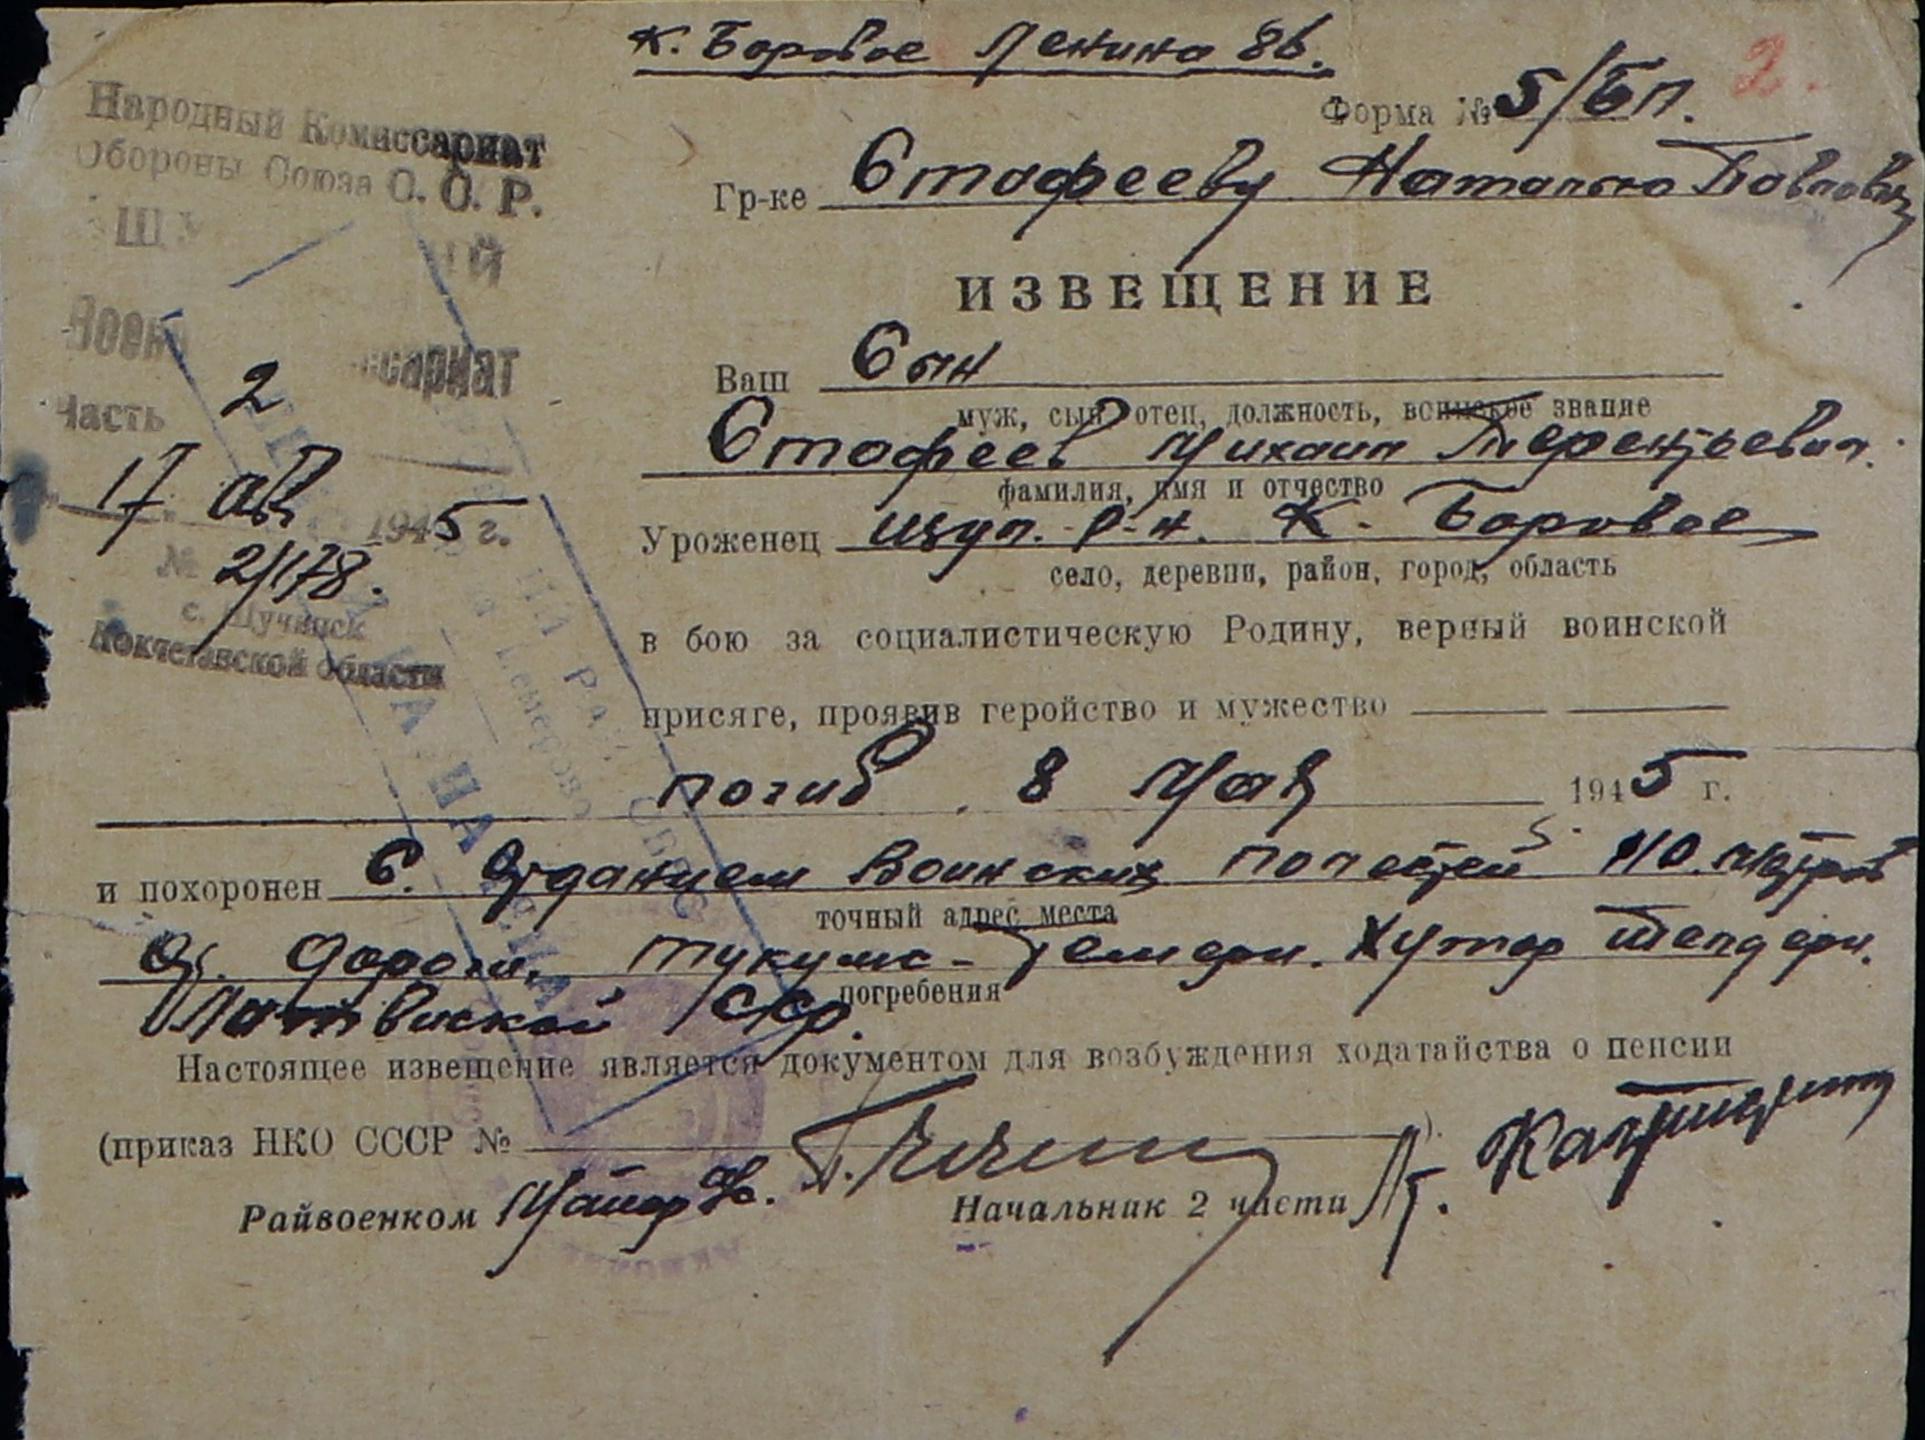 к. Боровое Ленина 86.
2.
Форма № 5/Бп.
Народный Комиссариат
Обороны Союза С. С. Р.
Гр-ке Стафееву Наталью Павловну
ИЗВЕЩЕНИЕ
Ваш Сын
муж, сын отец, должность, воинское звание
Часть 2
Стафеев Михаил Терентьевич.
фамилия, имя и отчество
17 авг 1945 г.
Уроженец Щуч. р-н. К. Боровое
село, деревни, район, город, область
№ 2/178.
с. Щучинск
Кокчетавской области
в бою за социалистическую Родину, верный воинской
присяге, проявив геройство и мужество
погиб 8 Мая 1945 г.
и похоронен С. Отданием Воинских почестей 110. метров
точный адрес места
От. дороги. Тукумс - Темери. Хутор
погребения
Латвиской ССР.
Настоящее извещение является документом для возбуждения ходатайства о пенсии
(приказ НКО СССР № )
Райвоенком Майор
Начальник 2 части